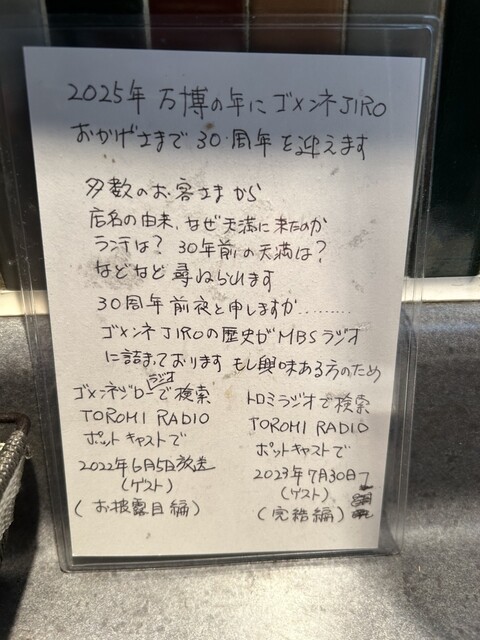 2025年 万博の年に ゴメンネJIRO
おかげさまで 30周年を迎えます
多数のお客さまから
店名の由来、なぜ天満に来たのか
ランチは? 30年前の天満は?
などなど 尋ねられます
30周年前夜と申しますか………
ゴメンネJIROの歴史がMBSラジオ
に詰まっております もし興味ある方のため
ラジオ
ゴメンネジローで検索
TOROMI RADIO
ポットキャストで
2022年6月5日放送
(ゲスト)
(お披露目編)
トロミラジオで検索
TOROMI RADIO
ポットキャストで
2023年7月30日
(ゲスト)
(完結編)